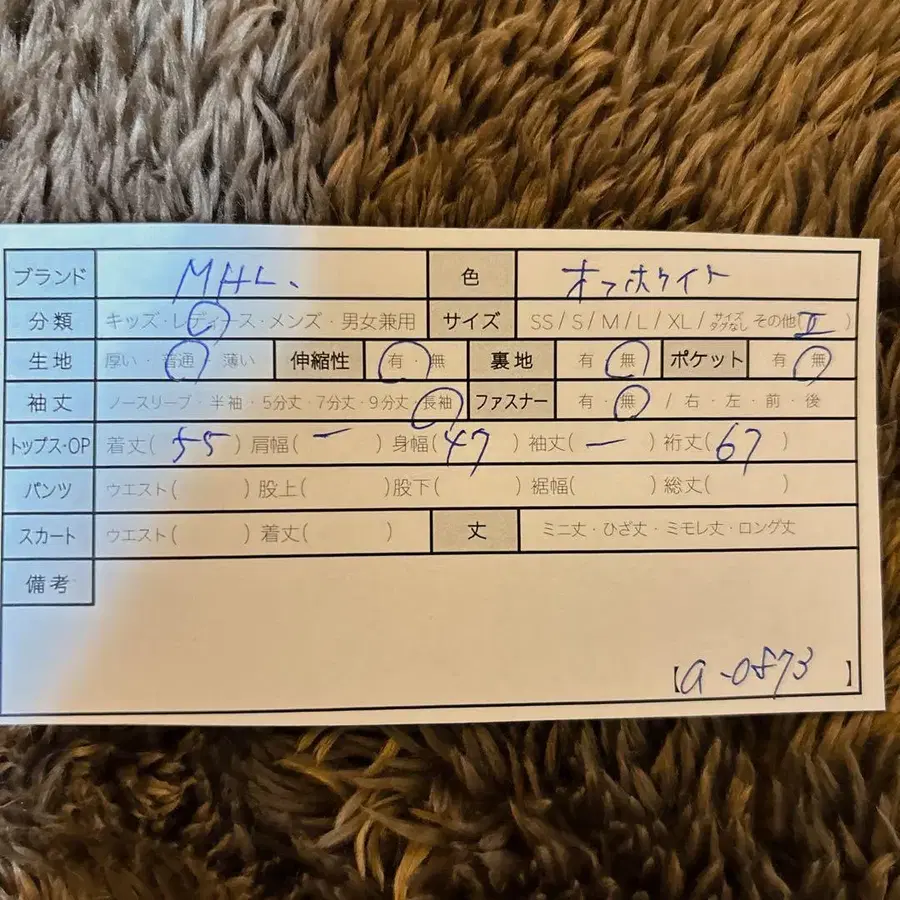 ブランド MHL. 色 オフホワイト
分類 キッズ・レディース・メンズ・男女兼用 サイズ SS/S/M/L/XL/サイズタグなし その他(II)
生地 厚い・普通・薄い 伸縮性 有・無 裏地 有・無 ポケット 有・無
袖丈 ノースリーブ・半袖・5分丈・7分丈・9分丈・長袖 ファスナー 有・無 / 右・左・前・後
トップス・OP 着丈(55) 肩幅(ー) 身幅(47) 袖丈(ー) 裄丈(67)
パンツ ウエスト( ) 股上( ) 股下( ) 裾幅( ) 総丈( )
スカート ウエスト( ) 着丈( ) 丈 ミニ丈・ひざ丈・ミモレ丈・ロング丈
備考
【a-0873】